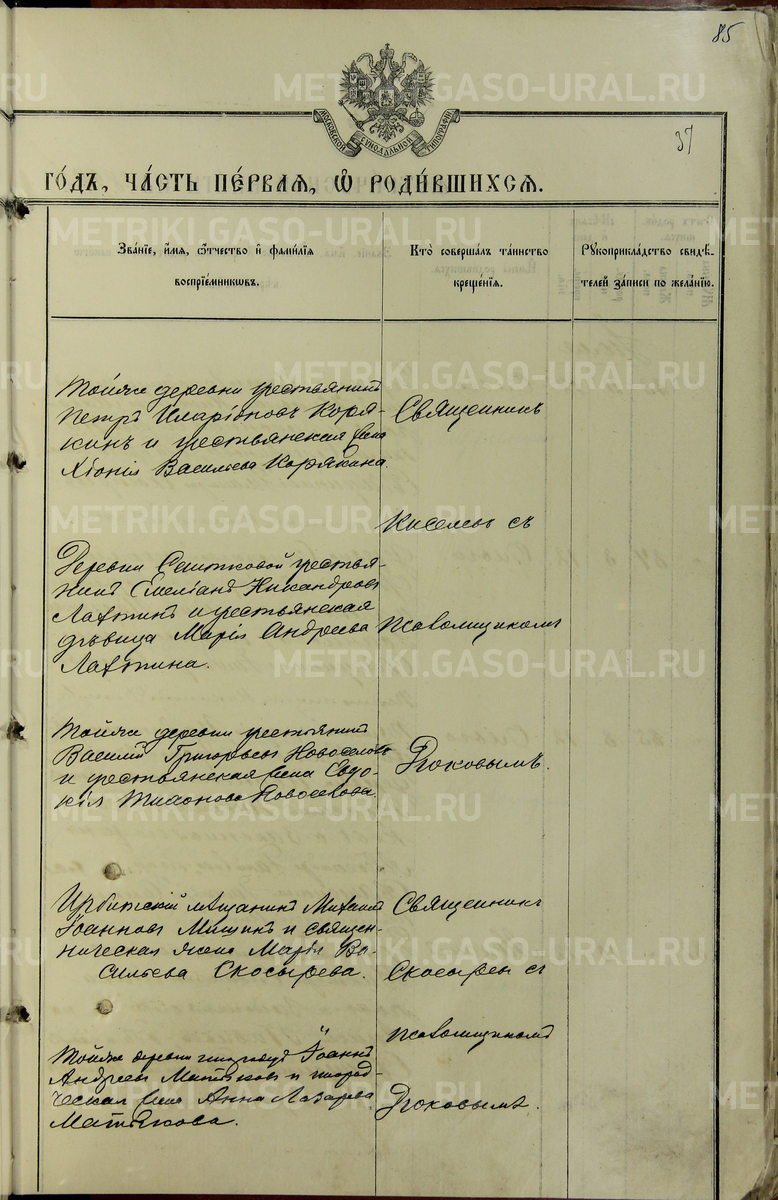 85
37
МОСКОВСКОЙ СѴНОДАЛЬНОЙ ТИПОГРАФІИ
ГО́ДЪ, ЧА́СТЬ ПЕ́РВАЯ, Ѽ РОДИ́ВШИХСЯ.
Зва́нїе, и҆́мя, ѻ҆́тчество и҆ фами́лїя
воспрїе́мниковъ.
Кто̀ соверша́лъ та́инство
креще́нїя.
Рꙋкоприкла́дство свидѣ́-
телей за́писи по жела́нїю.
Тойже деревни крестьянинъ
Петръ Иларіоновъ Коря-
кинъ и крестьянская жена
Хіонія Васильева Корякина.
Священникъ
Киселевъ съ
Деревни крестья-
нинъ Емеліанъ Никандровъ
Лаптинъ и крестьянская
дѣвица Марія Андреева
Лаптина.
псаломщикомъ
Тойже деревни крестьянинъ
Василій Григорьевъ Новоселовъ
и крестьянская жена Евдо-
кія Новоселова.
Роковымъ.
Ирбитскій мѣщанинъ Михаилъ
Іоанновъ Мишинъ и священ-
ническая жена Марія Ва-
сильева Скосырева.
Священникъ
Скосыревъ съ
псаломщикомъ
Тойже деревни Іоаннъ
Андреевъ и
жена Анна Лазарева
Роковымъ.
METRIKI.GASO-URAL.RU